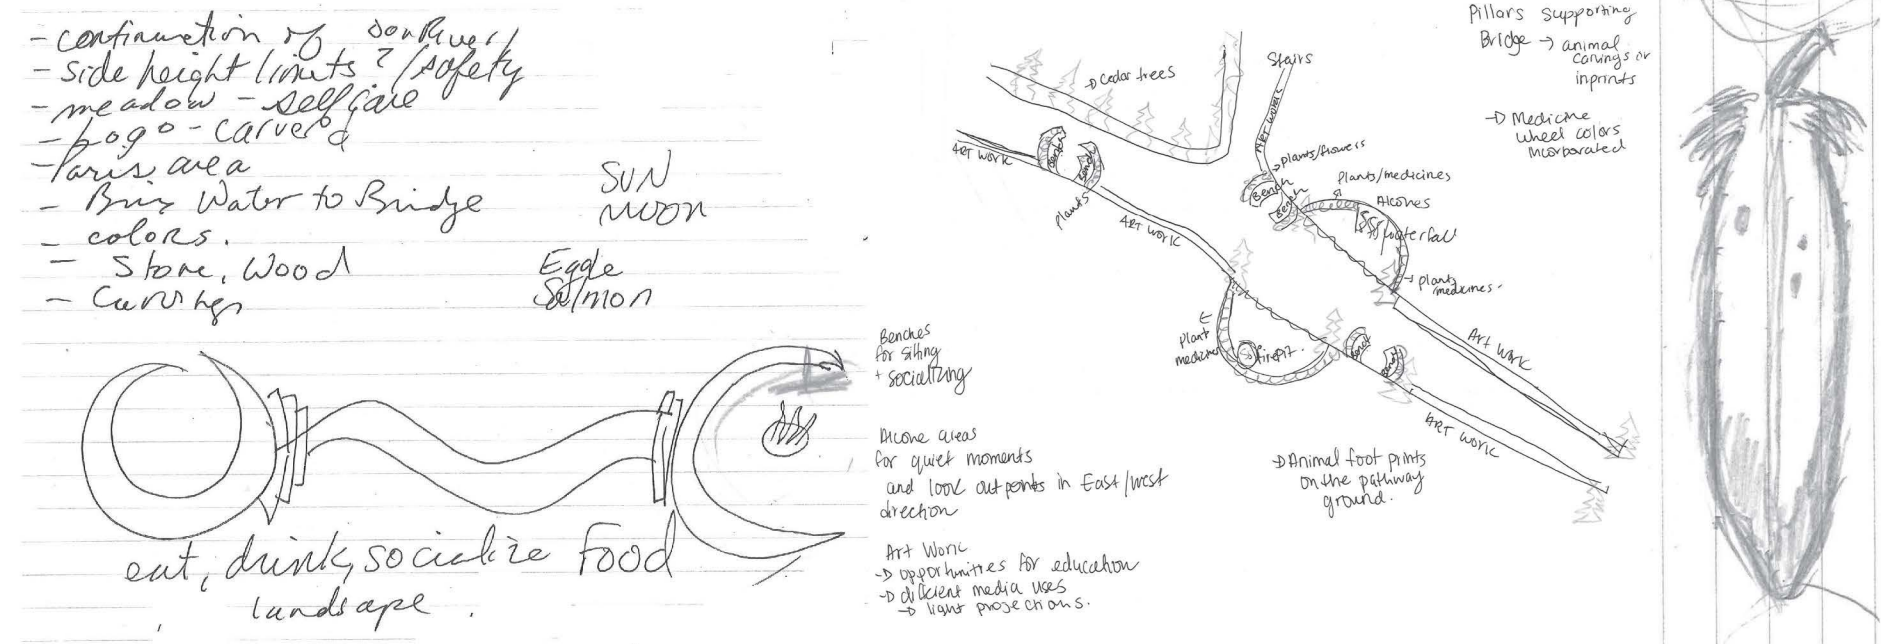 - continuation of Don River/
- side height limits? / safety
- meadow - selfcare
- Logo - carver
area
- Bring Water to Bridge
- colors.
- Stone, Wood
- Carvings
SUN
MOON
Eagle
Salmon
eat, drink, socialize food
landsape.
Benches
for sitting
+ socializing
Alcone areas
for quiet moments
and look out points in East/west
direction
Art Work
→ opportunities for education
→ different media uses
→ light projections.
→ Cedar trees
Stairs
Art Works
ART WORK
Bench
Bench
Plants
ART WORK
→ plants/flowers
Bench
Bench
Plants/medicines
Alcones
waterfall
→ plant
medicines.
plant
medicines
firepit.
Art Work
ART WORK
→ Animal foot prints
on the pathway
ground.
Pillars supporting
Bridge → animal
carvings or
inprints
→ Medicine
wheel colors
incorporated